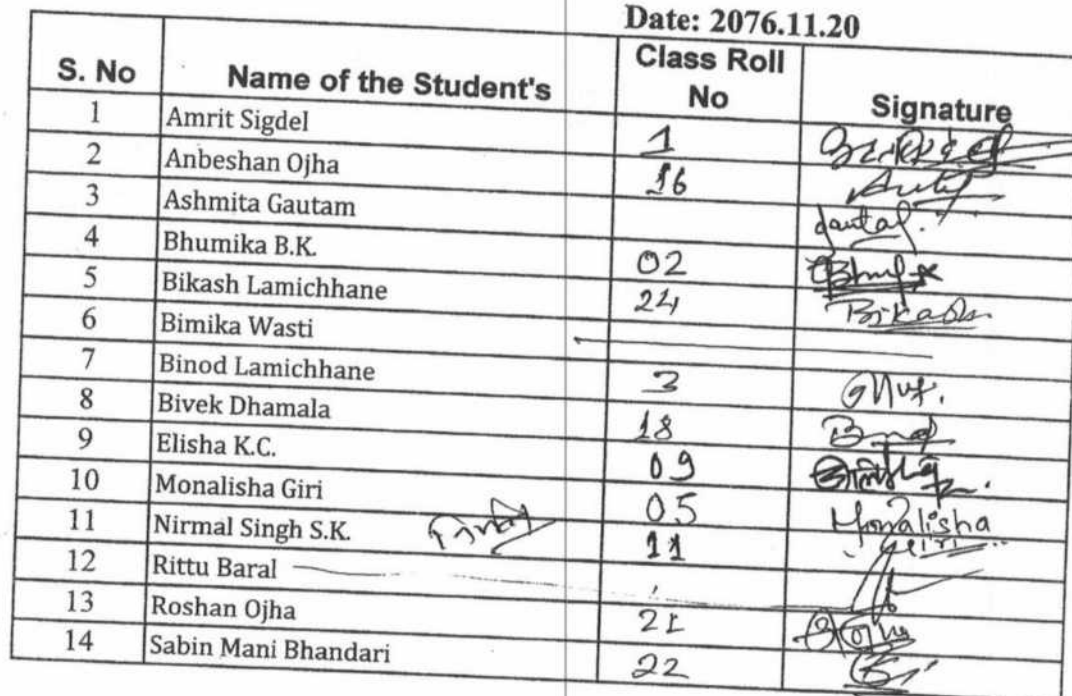 Date: 2076.11.20
S. No Name of the Student's Class Roll No Signature
1 Amrit Sigdel 1
2 Anbeshan Ojha 16
3 Ashmita Gautam
4 Bhumika B.K. 02
5 Bikash Lamichhane 24 Bikash
6 Bimika Wasti
7 Binod Lamichhane 3
8 Bivek Dhamala 18
9 Elisha K.C. 09
10 Monalisha Giri 05 Monalisha Giri
11 Nirmal Singh S.K. 11
12 Rittu Baral
13 Roshan Ojha 21
14 Sabin Mani Bhandari 22